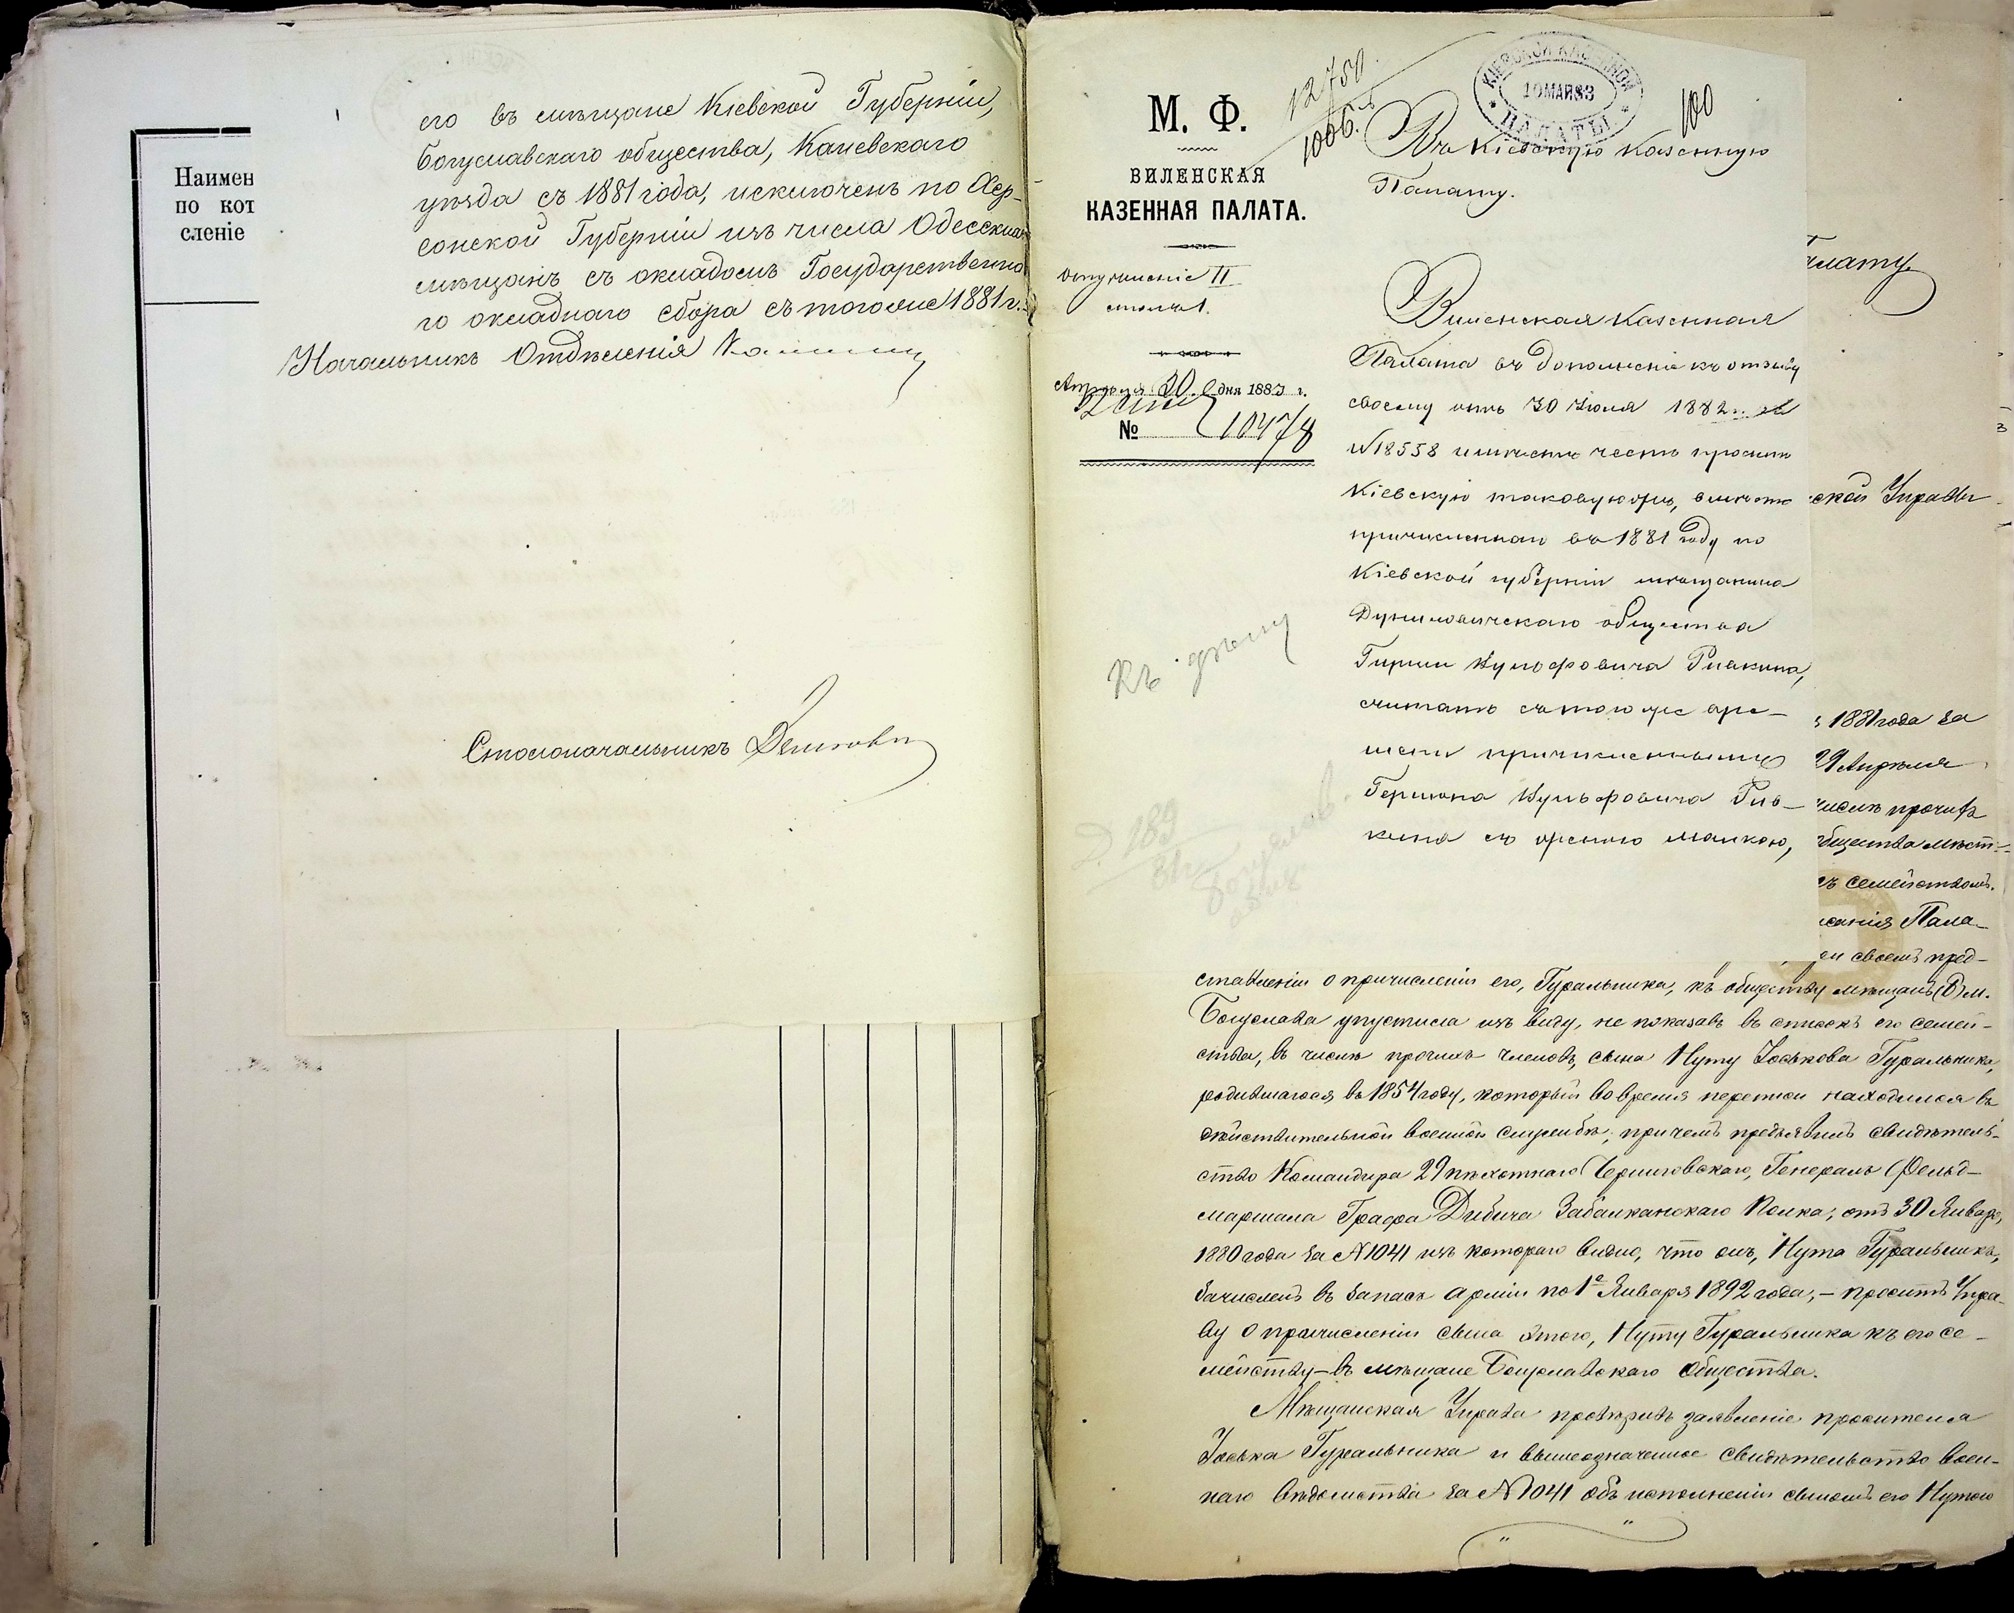 Наимен
по кот
сленіе
его въ мѣщане Кіевской Губерніи,
Богуславскаго общества, Каневскаго
уѣзда съ 1881 года, исключенъ по Хер-
сонской Губерніи изъ числа Одесскихъ
мѣщанъ съ окладомъ Государственна
го окладнаго сбора съ того же 1881 г.
Начальникъ Отдѣленія
Столоначальникъ
М. Ф.
ВИЛЕНСКАЯ
КАЗЕННАЯ ПАЛАТА.
Отдѣленіе II
столъ 1.
Апрѣля 30 дня 1883 г.
№ 10478
12750
1006.
КІЕВСКОЙ КАЗЕННОЙ
10 МАЯ 83
ПАЛАТЫ
100
Въ Кіевскую Казенную
Палату.
Виленская Казенная
Палата въ дополненіе къ отзыву
своему отъ 30 Іюля 1882 г. за
№ 18558 имѣетъ честь просить
Кіевскую таковую же, вмѣсто
причисленнаго въ 1881 году по
Кіевской губерніи мѣщанина
Дуниловичскаго общества
Гирши Вульфовича Ривкина,
считать съ того же вре-
мени причисленнымъ
Гершона Вульфовича Рив-
кина съ женою Малкою,
Къ дѣлу
Д. 189
алату
ской Управы
1881 года за
29 Апрѣля
числѣ прочихъ
общества мѣст-
съ семействомъ.
Пала-
своемъ пред-
ставленіи о причисленіи его, Гуральника, къ обществу мѣщанъ (в) м.
Богуслава упустила изъ виду, не показавъ въ спискѣ его семей-
ства, въ числѣ прочихъ членовъ, сына Нуту Іоськова Гуральника,
родившагося въ 1854 году, который во время переписи находился въ
дѣйствительной военной службѣ; при чемъ предъявилъ свидѣтель-
ство Командира 29 пѣхотнаго Черниговскаго, Генералъ Фельд-
маршала Графа Дибича Забалканскаго Полка, отъ 30 Января
1880 года за № 1041 изъ котораго видно, что онъ, Нута Гуральникъ,
зачисленъ въ запасъ арміи по 1е Января 1892 года, – проситъ Упра-
ву о причисленіи сына этого, Нуту Гуральника къ его се-
мейству – въ мѣщане Богуславскаго Общества.
Мѣщанская Управа провѣривъ заявленіе просителя
Іоська Гуральника и вышеозначенное свидѣтельство воен-
наго вѣдомства за № 1041 объ исполненіи сыномъ его Нутою